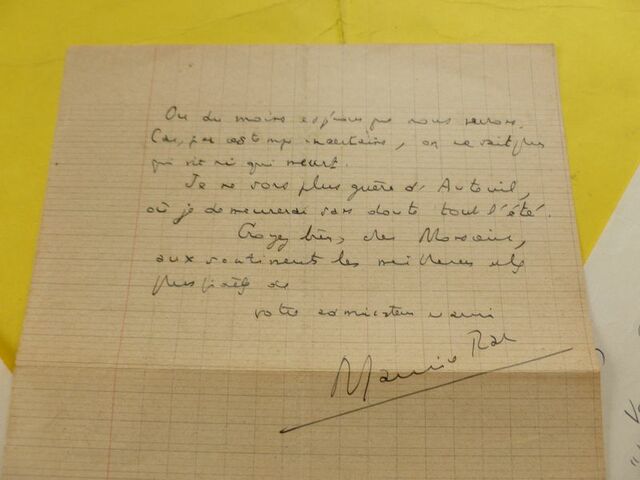 Ou du moins espérons que nous serons.
Car, par ces temps incertains, on ne sait plus
qui vit ni qui meurt.
Je ne sors plus guère d'Auteuil,
où je demeurerai sans doute tout l'été.
Croyez bien, cher Monsieur,
aux sentiments les meilleurs et les
plus
votre admirateur et ami
Maurice Rat